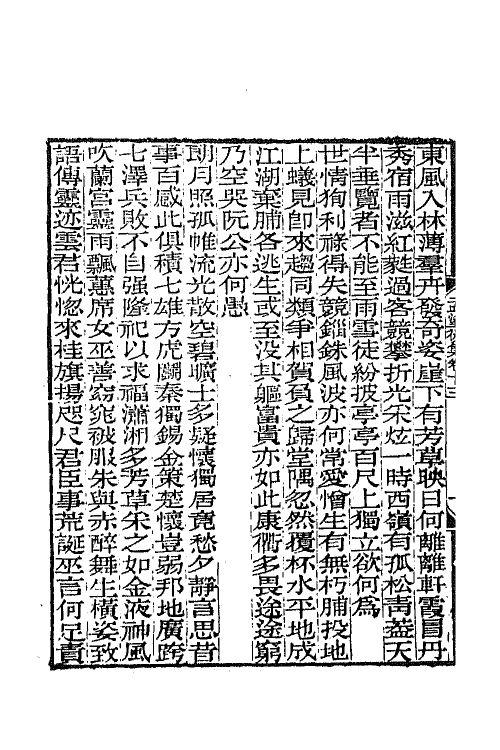 東風入林薄羣卉發奇姿崖下有芳草映日何離離軒霞冒丹
秀宿雨滋紅蕤過客競攀折光采炫一時西嶺有孤松青蓋天
半垂覽者不能至雨雲徒紛披亭亭百尺上獨立欲何為
世情狥利祿得失競錙銖風波亦何常愛憎生有無朽脯投地
上蟻見即來趨同類爭相賀負之歸堂隅忽然覆杯水平地成
江湖棄脯各逃生或至沒其軀富貴亦如此康衢多畏途途窮
乃空哭阮公亦何愚
朗月照孤帷流光散空碧曠士多疑懷獨居竟愁夕靜言思昔
事百感此俱積七雄方虎鬭秦獨錫金策楚懷豈弱邦地廣跨
七澤兵敗不自强隆祀以求福瀟湘多芳草采之如金液神風
吹蘭宮靈雨飄蕙席女巫善窈窕被服朱與赤醉舞生橫姿致
語傳靈迹雲君恍惚來桂旗揚咫尺君臣事荒誕巫言何足責